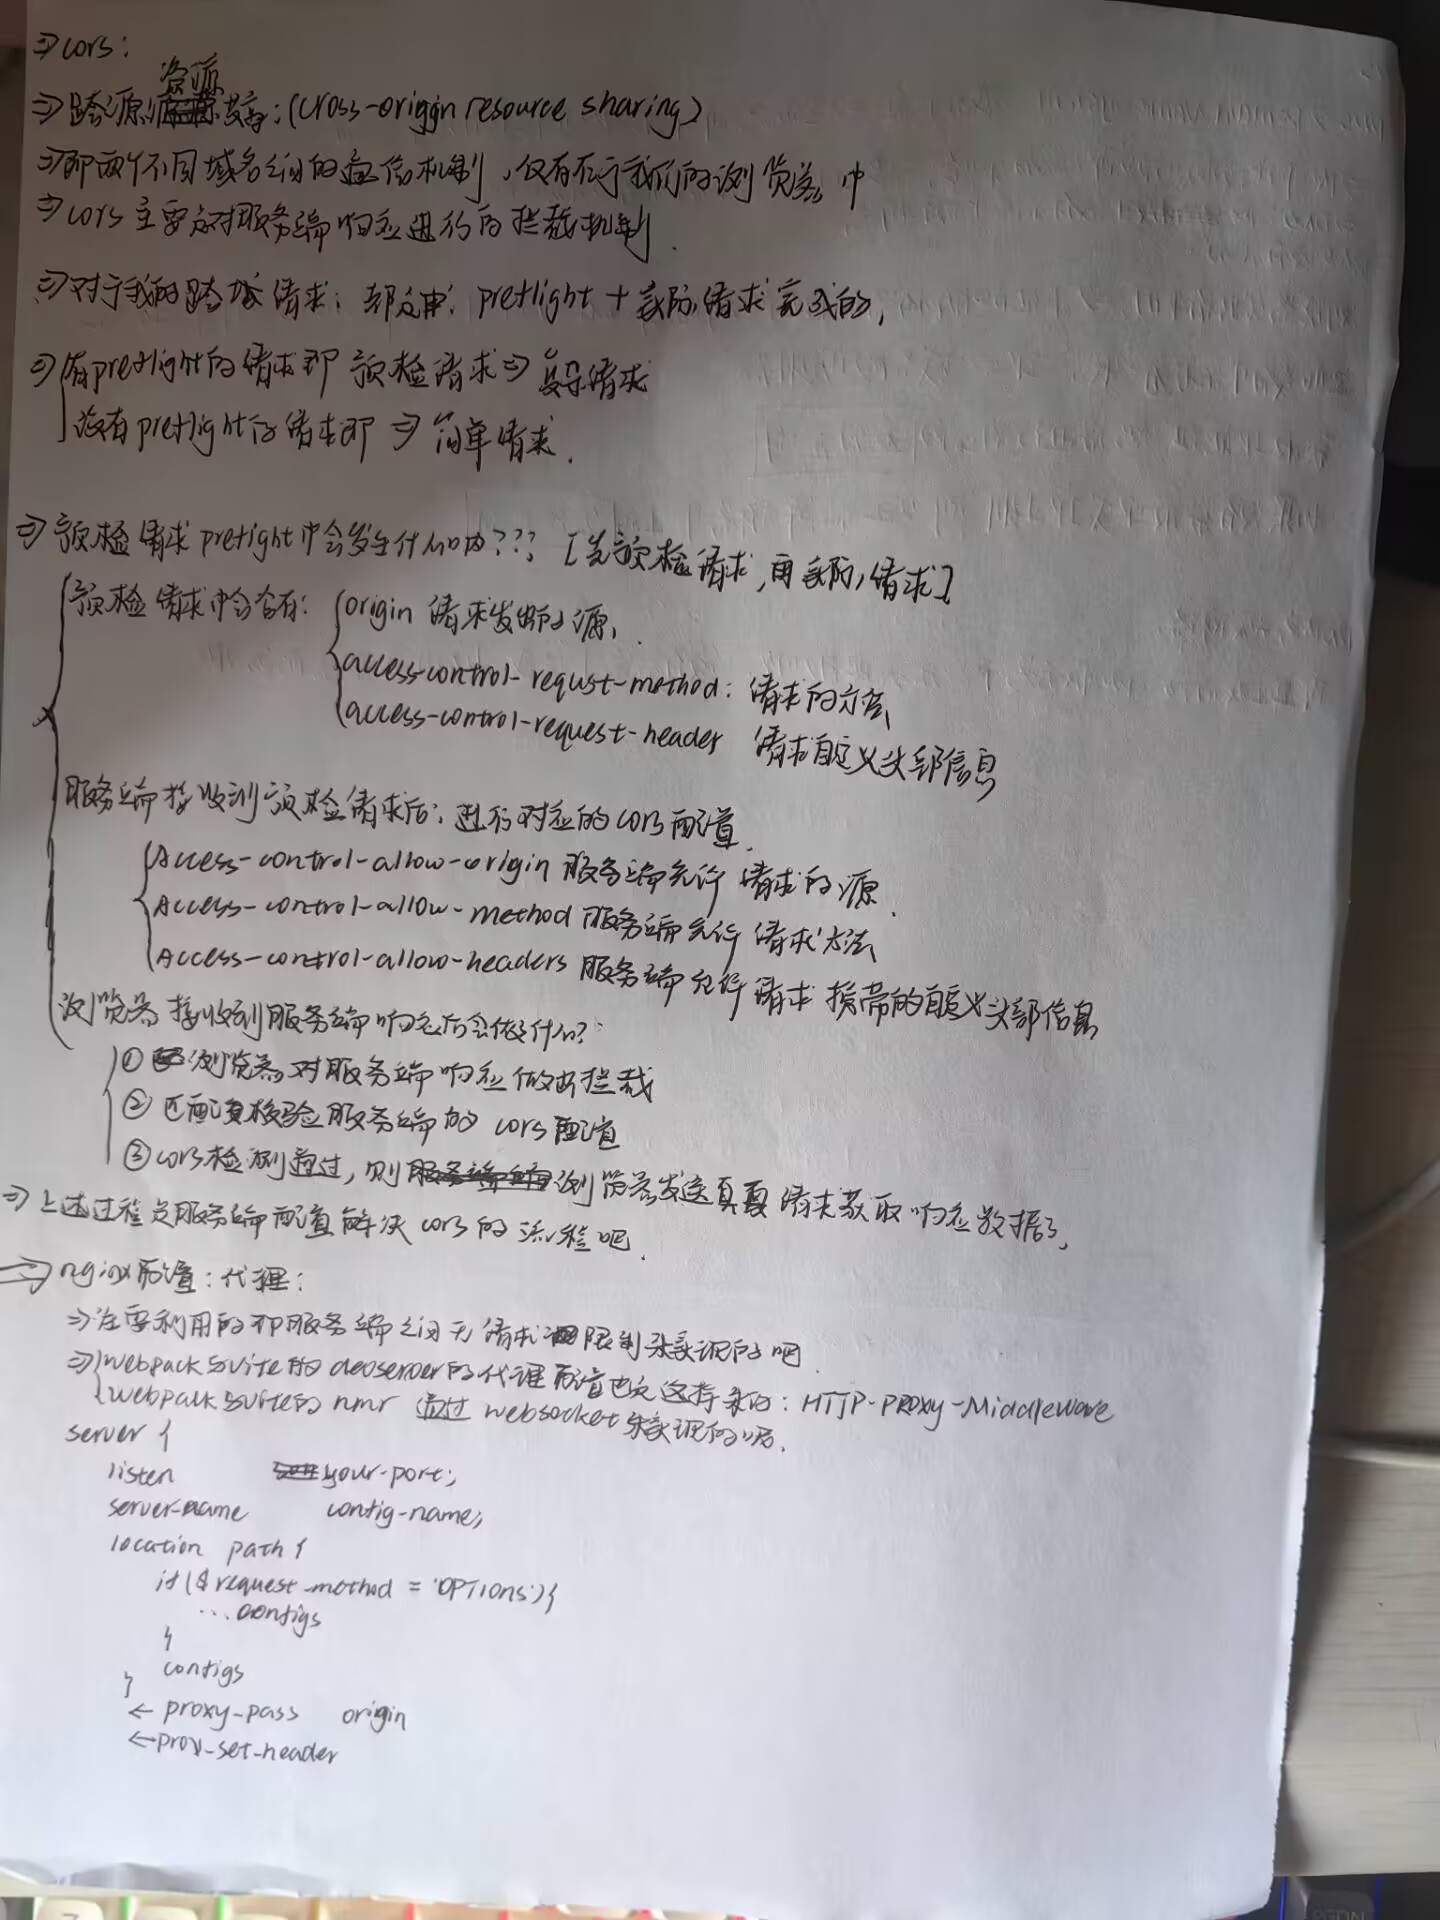 ⇒ cors:
资源
⇒ 跨源共享: (cross-origgin resource sharing)
⇒ 即两个不同域名之间的通信机制, 仅存在于我们的浏览器中
⇒ cors 主要是对服务端响应进行的拦截机制.
⇒ 对于我的跨域请求: 都是由: preflight + 实际请求完成的,
⇒ 有preflight的请求即 预检请求 ⇒ 复杂请求
没有preflight的请求即 ⇒ 简单请求.
⇒ 预检请求 prefight中会发生什么内??? [先预检请求, 再实际请求]
预检请求中会含有: origin 请求发出的源,
access-control-requst-method: 请求的方法
access-control-request-header 请求自定义头部信息
服务端接收到预检请求后: 进行对应的cors配置.
Access-control-allow-origin 服务端允许请求的源.
Access-control-allow-method 服务端允许请求方法
Access-control-allow-headers 服务端允许请求携带的自定义头部信息
浏览器接收到服务端响应后会做什么?
① 浏览器对服务端响应做出拦截
② 匹配校验服务端的 cors 配置
③ cors检测通过, 则浏览器发送真实请求获取响应数据了,
⇒ 上述过程是服务端配置解决 cors的流程吧.
⇒ nginx配置: 代理:
⇒ 主要利用的即服务端之间无请求限制来实现的吧
⇒ webpack与vite的devserver的代理配置也是这样来的: HTTP-PROXY-MiddleWare
webpack与vite的 hmr 通过 websocket来实现的吧.
server {
listen your-port;
server-name config-name;
location path {
if ($request_method = 'OPTIONS') {
... configs
}
configs
}
← proxy-pass origin
← proxy-set-header